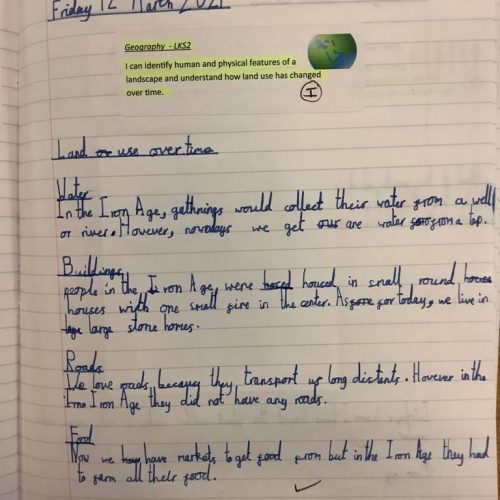 Friday 12 March 2021
Geography - LKS2
I can identify human and physical features of a
landscape and understand how land use has changed
over time.
I
Land or use over time
Water
In the Iron Age, gathnings would collect their water from a well
or river. However, nowadays we get our are water from a tap.
Buildings
people in the, Iron Age, were hosed housed in small round
houses with one small fire in the center. As for today, we live in
large stone homes.
Roads
We love roads, becauey they, transport us long distents. However in the
Iron Age they did not have any roads.
Food
Now we have markets to get food from but in the Iron Age they had
to farm all their food.